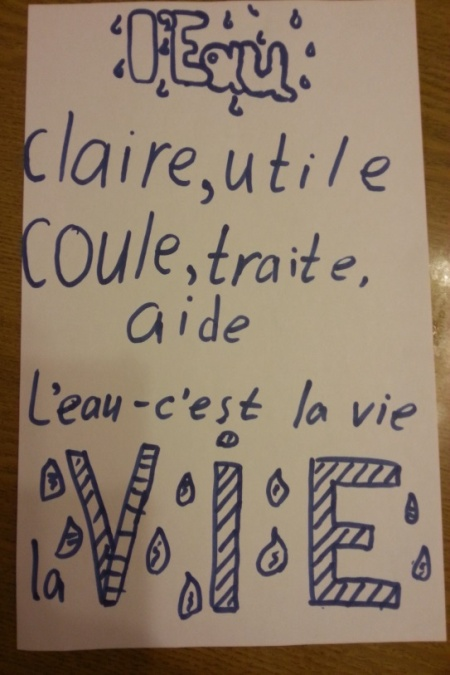 l'Eau
claire, utile
coule, traite,
aide
L'eau - c'est la vie
la ViE